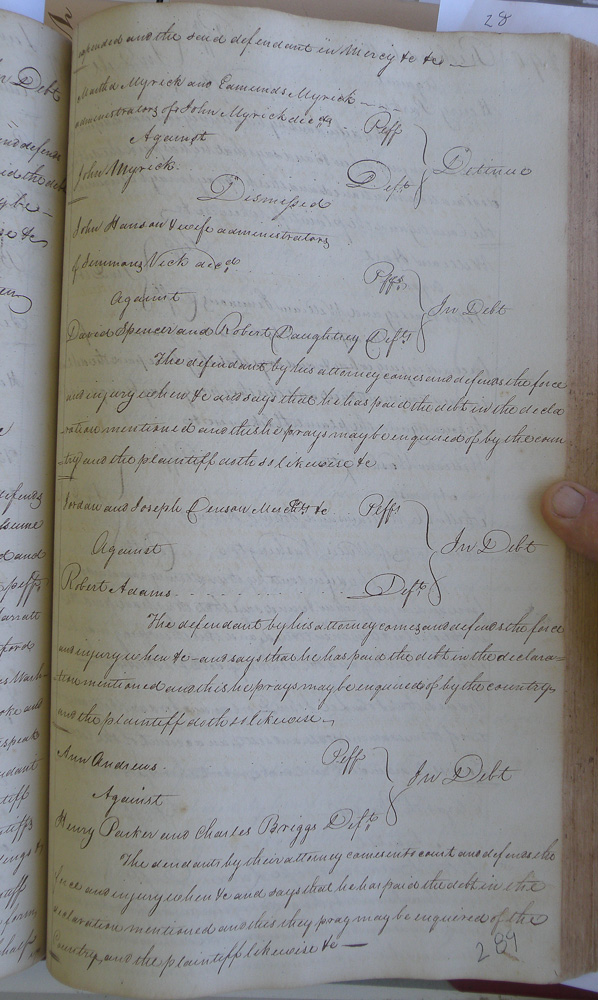 28
expended and the said defendant in Mercy &c &c
Martha Myrick and Edmunds Myrick
administrators of John Myrick dec'd
Plff
Against
Detinue
John Myrick
Deft
Dismissed
John Hanson & wife administrators
of Simmons Vick dec'd
Plffs
Against
In Debt
David Spencer and Robert Daughtrey Defts
The defendant by his attorney comes and defends the force
and injury when &c and says that he has paid the debt in the decla
ration mentioned and this he prays may be enquired of by the coun
try and the plaintiff doth so likewise &c
Jordan and Joseph Denson Merchts &c Plffs
Against
In Debt
Robert Adams
Deft
The defendant by his attorney comes and defends the force
and injury when &c and says that he has paid the debt in the declara=
tion mentioned and this he prays may be enquired of by the country
and the plaintiff doth so likewise
Ann Andrews
Plff
In Debt
Against
Henry Parker and Charles Briggs Deft
The dendants by their attorney comes into court and defends the
force and injury when &c and says that he has paid the debt in the
declaration mentioned and this they pray may be enquired of the
Country, and the plaintiff likewise &c
289